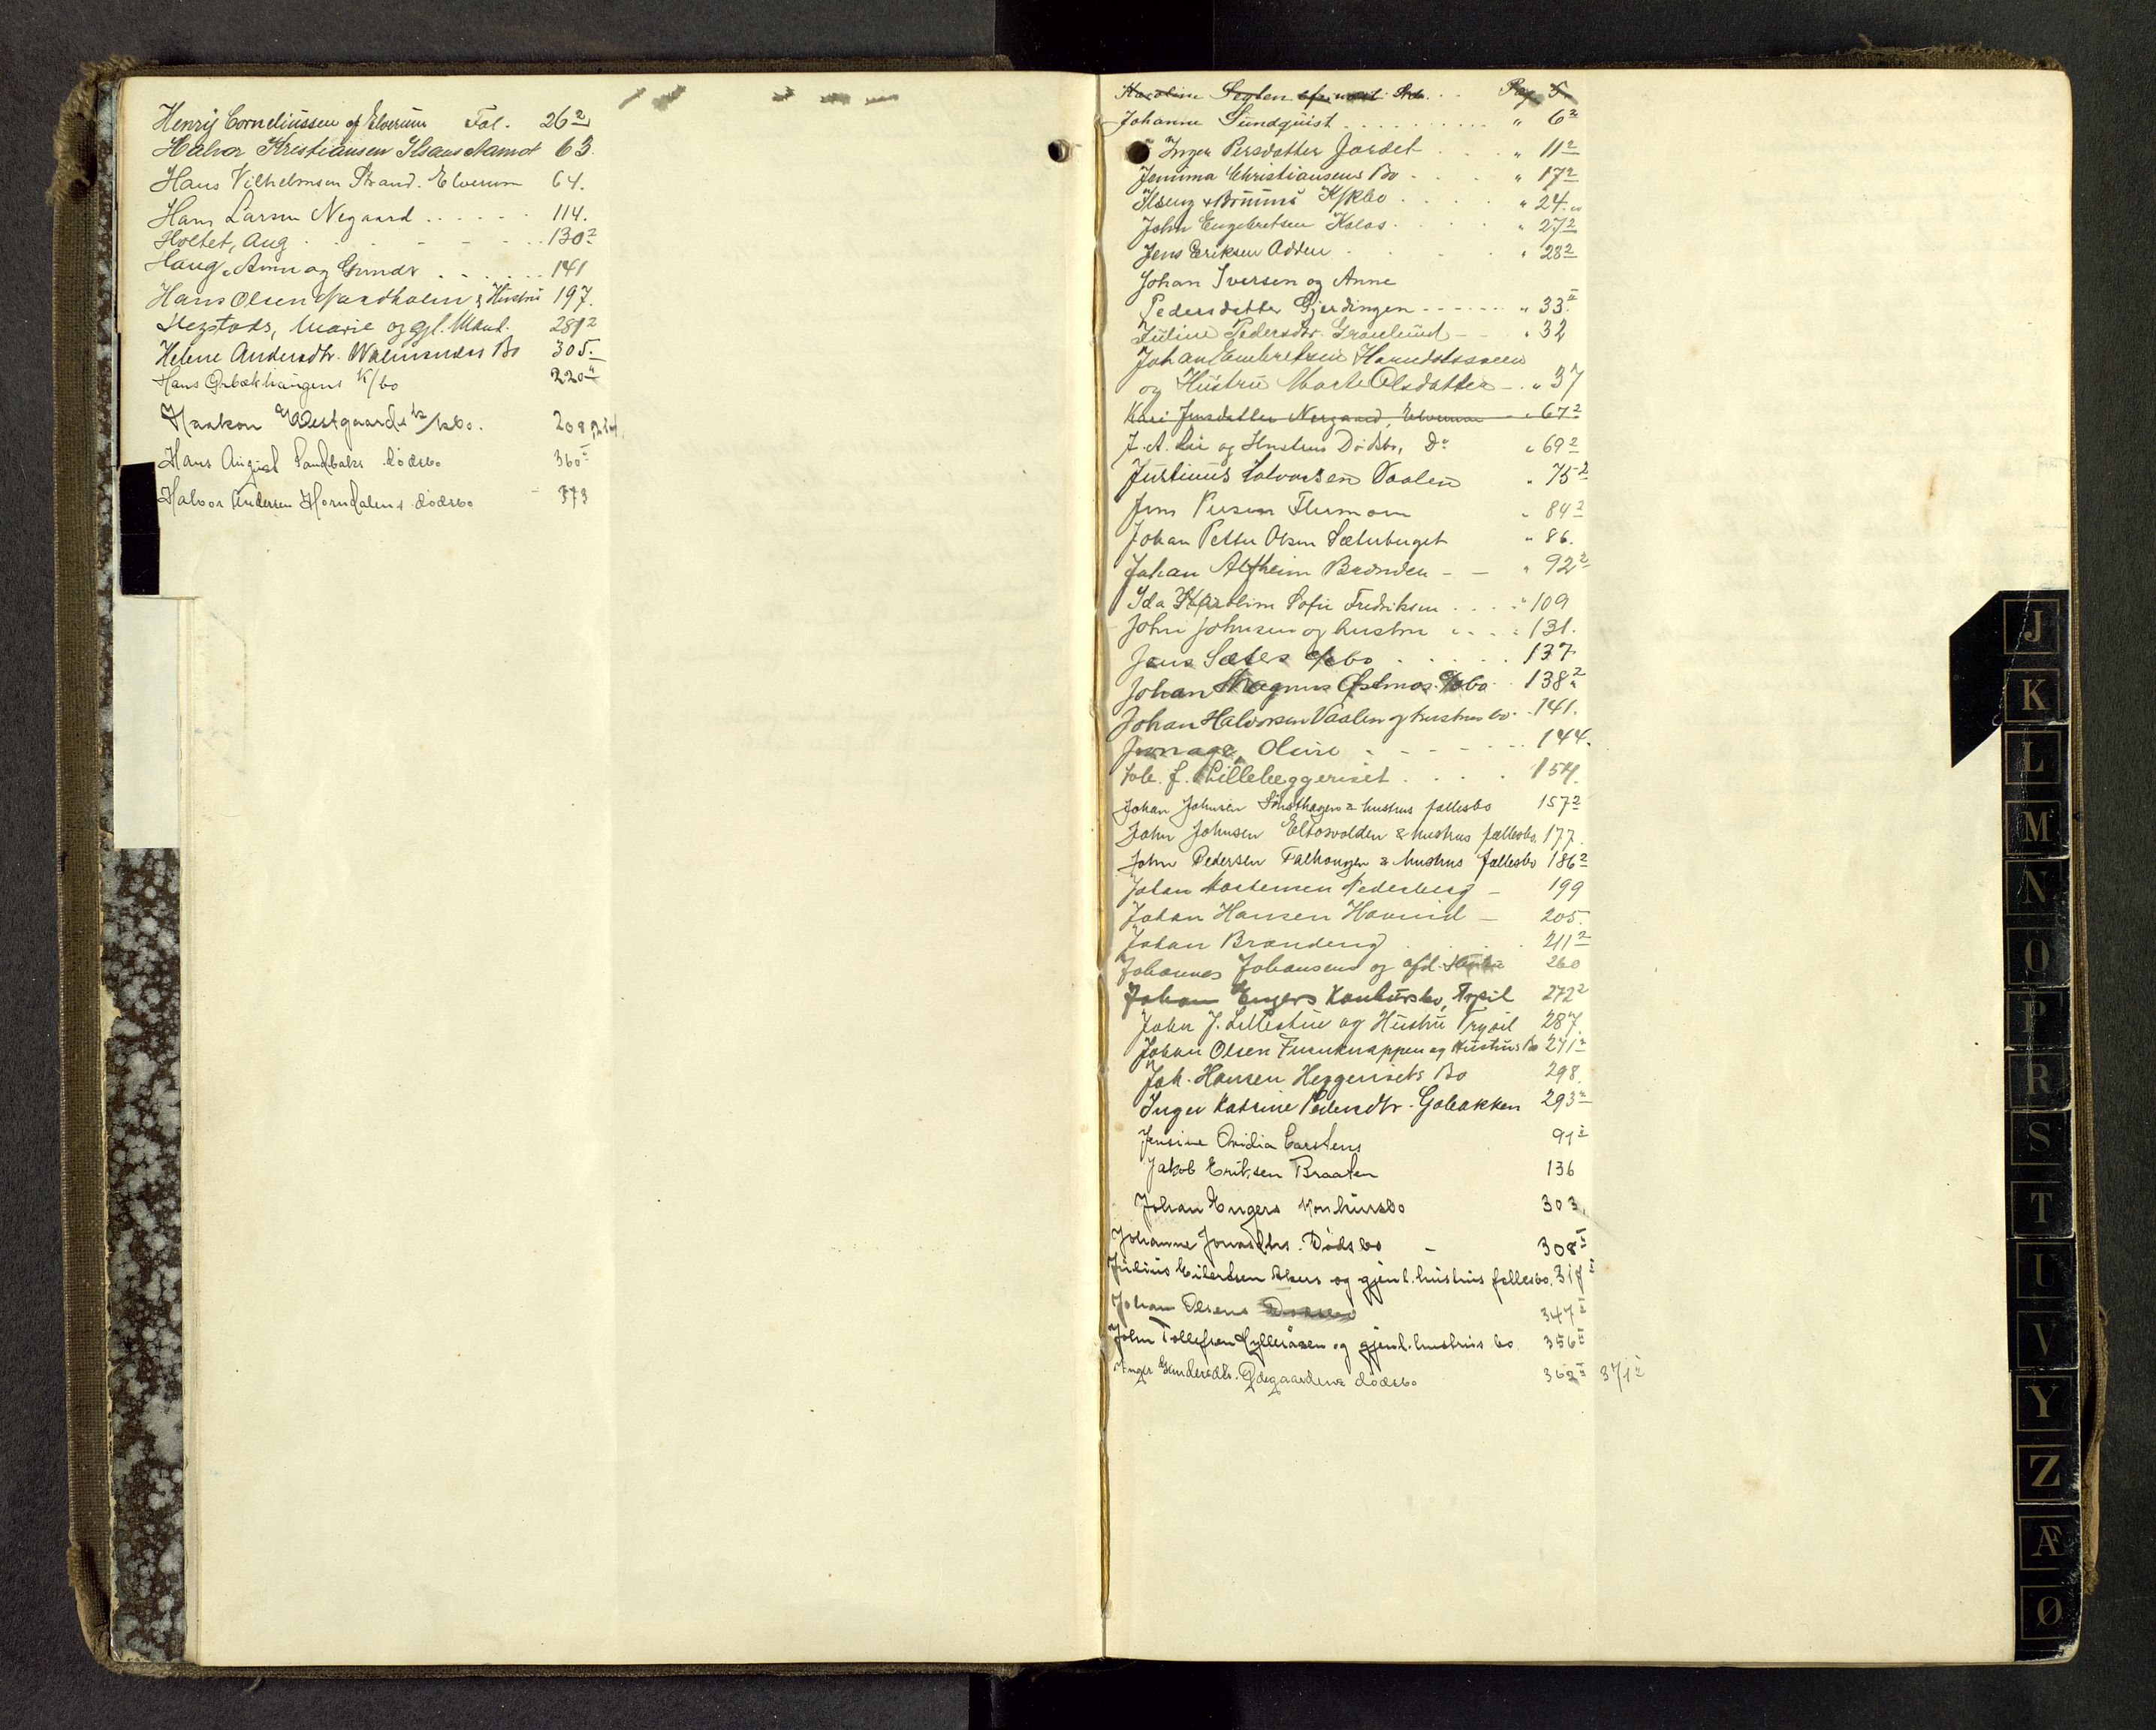 Henrij Corneliussen af Elverum Fol. 26 2
Halvor Kristiansen Ilsaas Aamot 63.
Hans Vilhelmsen Strand. Elverum 64.
Hans Larsen Negaard . . . . . 114.
Holtet, Aug . . . - - - . . 130 2
Haug, Anne og Gunder . . . . . . 141
Hans Olsen & Hustru 197.
Marie og gjl. Mand. 281 2
Helene Andersdtr. Bo 305.-
Hans Grbækhaugens K/bo 220 "
Haakon Westgaards k/kbo. 208, 224.
Hans August Sandbaks dødsbo 360 II
Halvor Andersen Horndalens dødsbo - 373
Karoline Pag. 5
Johanne Sundquist . . . . . . . . . . " 6 2
Inger Persdatter Jordet . . . . " 11 2
Jemima Christiansens Bo . . . " 17 2
Ilseng & K/kbo . . . . " 24.
John Engebretsen Kolos . . . . " 27 2
Jens Eriksen Adden . . . . " 28 2
Johan Iversen og Anne
Pedersdatter Gjerdingen - - - - - - " 33. II
Juline Pedersdtr. Grønlund - - " 32
Johan Embretsen
og Hustru Marte Olsdatter - . " 37
Kari Jensdatter Nergaard, Elverum - " 67 2
J. A. Lie og Hustrus Dødsbo, Do " 69 2
Justinus Halvorsen Vaalen " 75 2
Jens Persen Flermoen " 84 2
Johan Petter Olsen Sæterberget " 86.
Johan Alfheim Brænden - - " 92 2
Ida Karoline Sofie Fredriksen . . . . " 109
John Johnsen og hustru " . . . " 131.
Jens Sæters bo . . . . . 137.
Johan Magnus Østmos bo. 138 2
Johan Halvorsen Vaalen og hustrus bo. 141.
Oline - - - - - . . 144.
Joh. J. Lilleheggeriset . . . . 154.
Johan Johnsen Sønsthagen & hustrus fællesbo 157 2
John Johnsen Eltosvolden & hustrus fællesbo. 177.
John Pedersen Fælhaugen & hustrus fællesbo 186 2
Johan Mortensen Vederberg - 199
Johan Hansen Haverud - 205.
Johan Brændeng . . . . 211 2
Johannes Johansen og afd. Hustru 260
Johan Engers Konkursbo, Trysil 272 2
John J. Lillestue og Hustru Trysil 287.
Johan Olsen Furuknappen og Hustrus Bo 291 2
Joh. Hansen Heggerisets Bo 298.
Inger Katrine Pedersdtr. Galbakken 293 2
Jensine Ovidia Carstens 91 2
Jakob Eriksen Braaten 136
Johan Engers Konkursbo 303.
Johanne Jonasdtrs. Dødsbo - 308 II
Julius Eilertsen Akers og gjenl. hustrus fellesbo. 317 II
Johan Olsens 347 II
John Tollefsen Hylleråsen og gjenl. hustrus bo 356 II
Inger Gundersdtr. Ødegaardens dødsbo 362 II 371 2
J
K
L
M
N
O
P
R
S
T
U
V
Y
Z
Æ
Ø